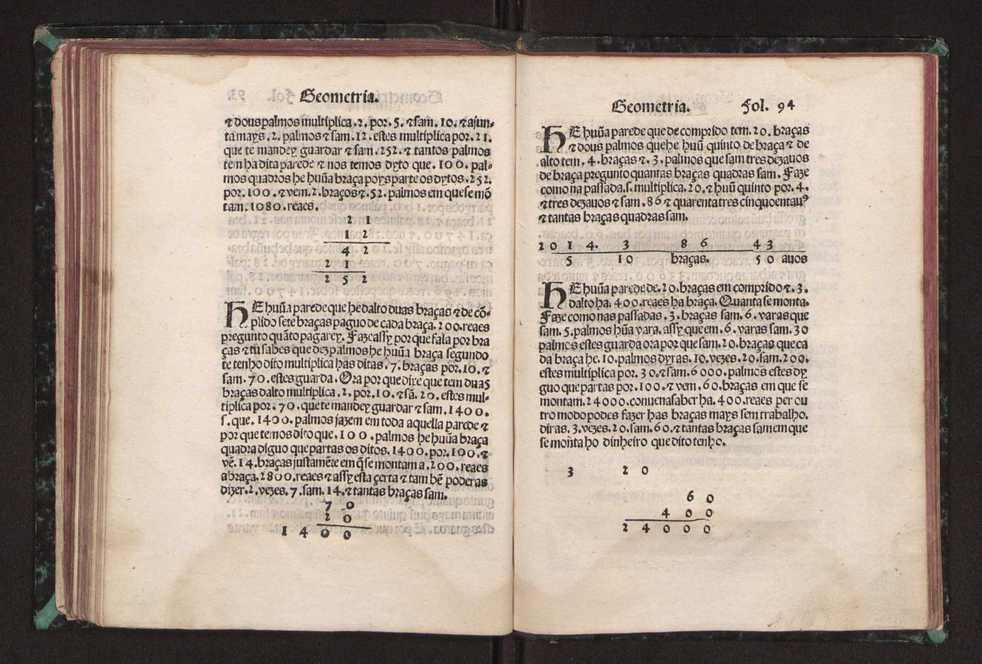 Geometria.
⁊ dous palmos multiplica .2. por .5. ⁊ sam .10. ⁊ ajun-
ta mays .2. palmos ⁊ sam .12. estes multiplica por .21.
que te mandey guardar ⁊ sam .252. ⁊ tantos palmos
tem ha dita parede ⁊ nos temos dyto que .100. pal-
mos quadros he huũa braça poys parte os dytos .252.
por .100. ⁊ vem .2. braços ⁊ .52. palmos em que se mõ
tam .1080. reaes.
2 1
1 2
4 2
2 1
2 5 2
HE huũa parede que he dalto duas braças ⁊ de cõ-
prido sete braças paguo de cada braça .200. reaes
pregunto quãto pagarey. Faze assy por que fala por bra
ças ⁊ tu sabes que dez palmos he huũa braça segundo
te tenho dito multiplica has ditas .7. braças por .10. ⁊
sam .70. estes guarda. Ora por que dixe que tem duas
braças dalto multiplica .2. por .10. ⁊ sã .20. estes mul-
tiplica por .70. que te mandey guardar ⁊ sam .1400.
s. que .1400. palmos jazem em toda aquella parede ⁊
por que temos dito que .100. palmos he huũa braça
quadra diguo que partas os ditos .1400. por .100. ⁊
vẽ .14. braças justamẽte em q̃ se montam a .200. reaes
a braça .2800. reaes ⁊ assy esta çerta ⁊ tam bẽ poderas
dizer .2. vezes .7. sam .14. ⁊ tantas braças sam.
7 0
2 0
1 4 0 0
Geometria. Fol. 94
HE huũa parede que de comprido tem .20. braças
⁊ dous palmos que he huũ quinto de braça ⁊ de
alto tem .4. braças ⁊ .3. palmos que sam tres dezavos
de braça pregunto quantas braças quadras sam. Faze
como na passada .s. multiplica .20. ⁊ huũ quinto por .4.
⁊ tres dezavos ⁊ sam .86 ⁊ quarenta tres cinquoentavꝰ
⁊ tantas braças quadras sam.
2 0 1 4. 3 8 6 4 3
5 1 0 braças. 5 0 avos
HE huũa parede de .20. braças em comprido ⁊ .3.
dalto ha .400. reaes ha braça. Quanta se monta.
Faze como nas passadas .3. braças sam .6. varas que
sam .5. palmos hũa vara. assy que em .6. varas sam 30
palmos estes guarda ora por que sam .20. braças que ca
da braça he .10. palmos dyras .10. vezes .20. sam .200.
estes multiplica por .30. ⁊ sam .6000. palmos estes dy
guo que partas por .100. ⁊ vem .60. braças em que se
montam .24000. convem a saber ha .400. reaes per ou
tro modo podes fazer has braças mays sem trabalho.
diras .3. vezes .20. sam .60. ⁊ tantas braças sam em que
se mõta ho dinheiro que dito tenho.
3 2 0
6 0
4 0 0
2 4 0 0 0